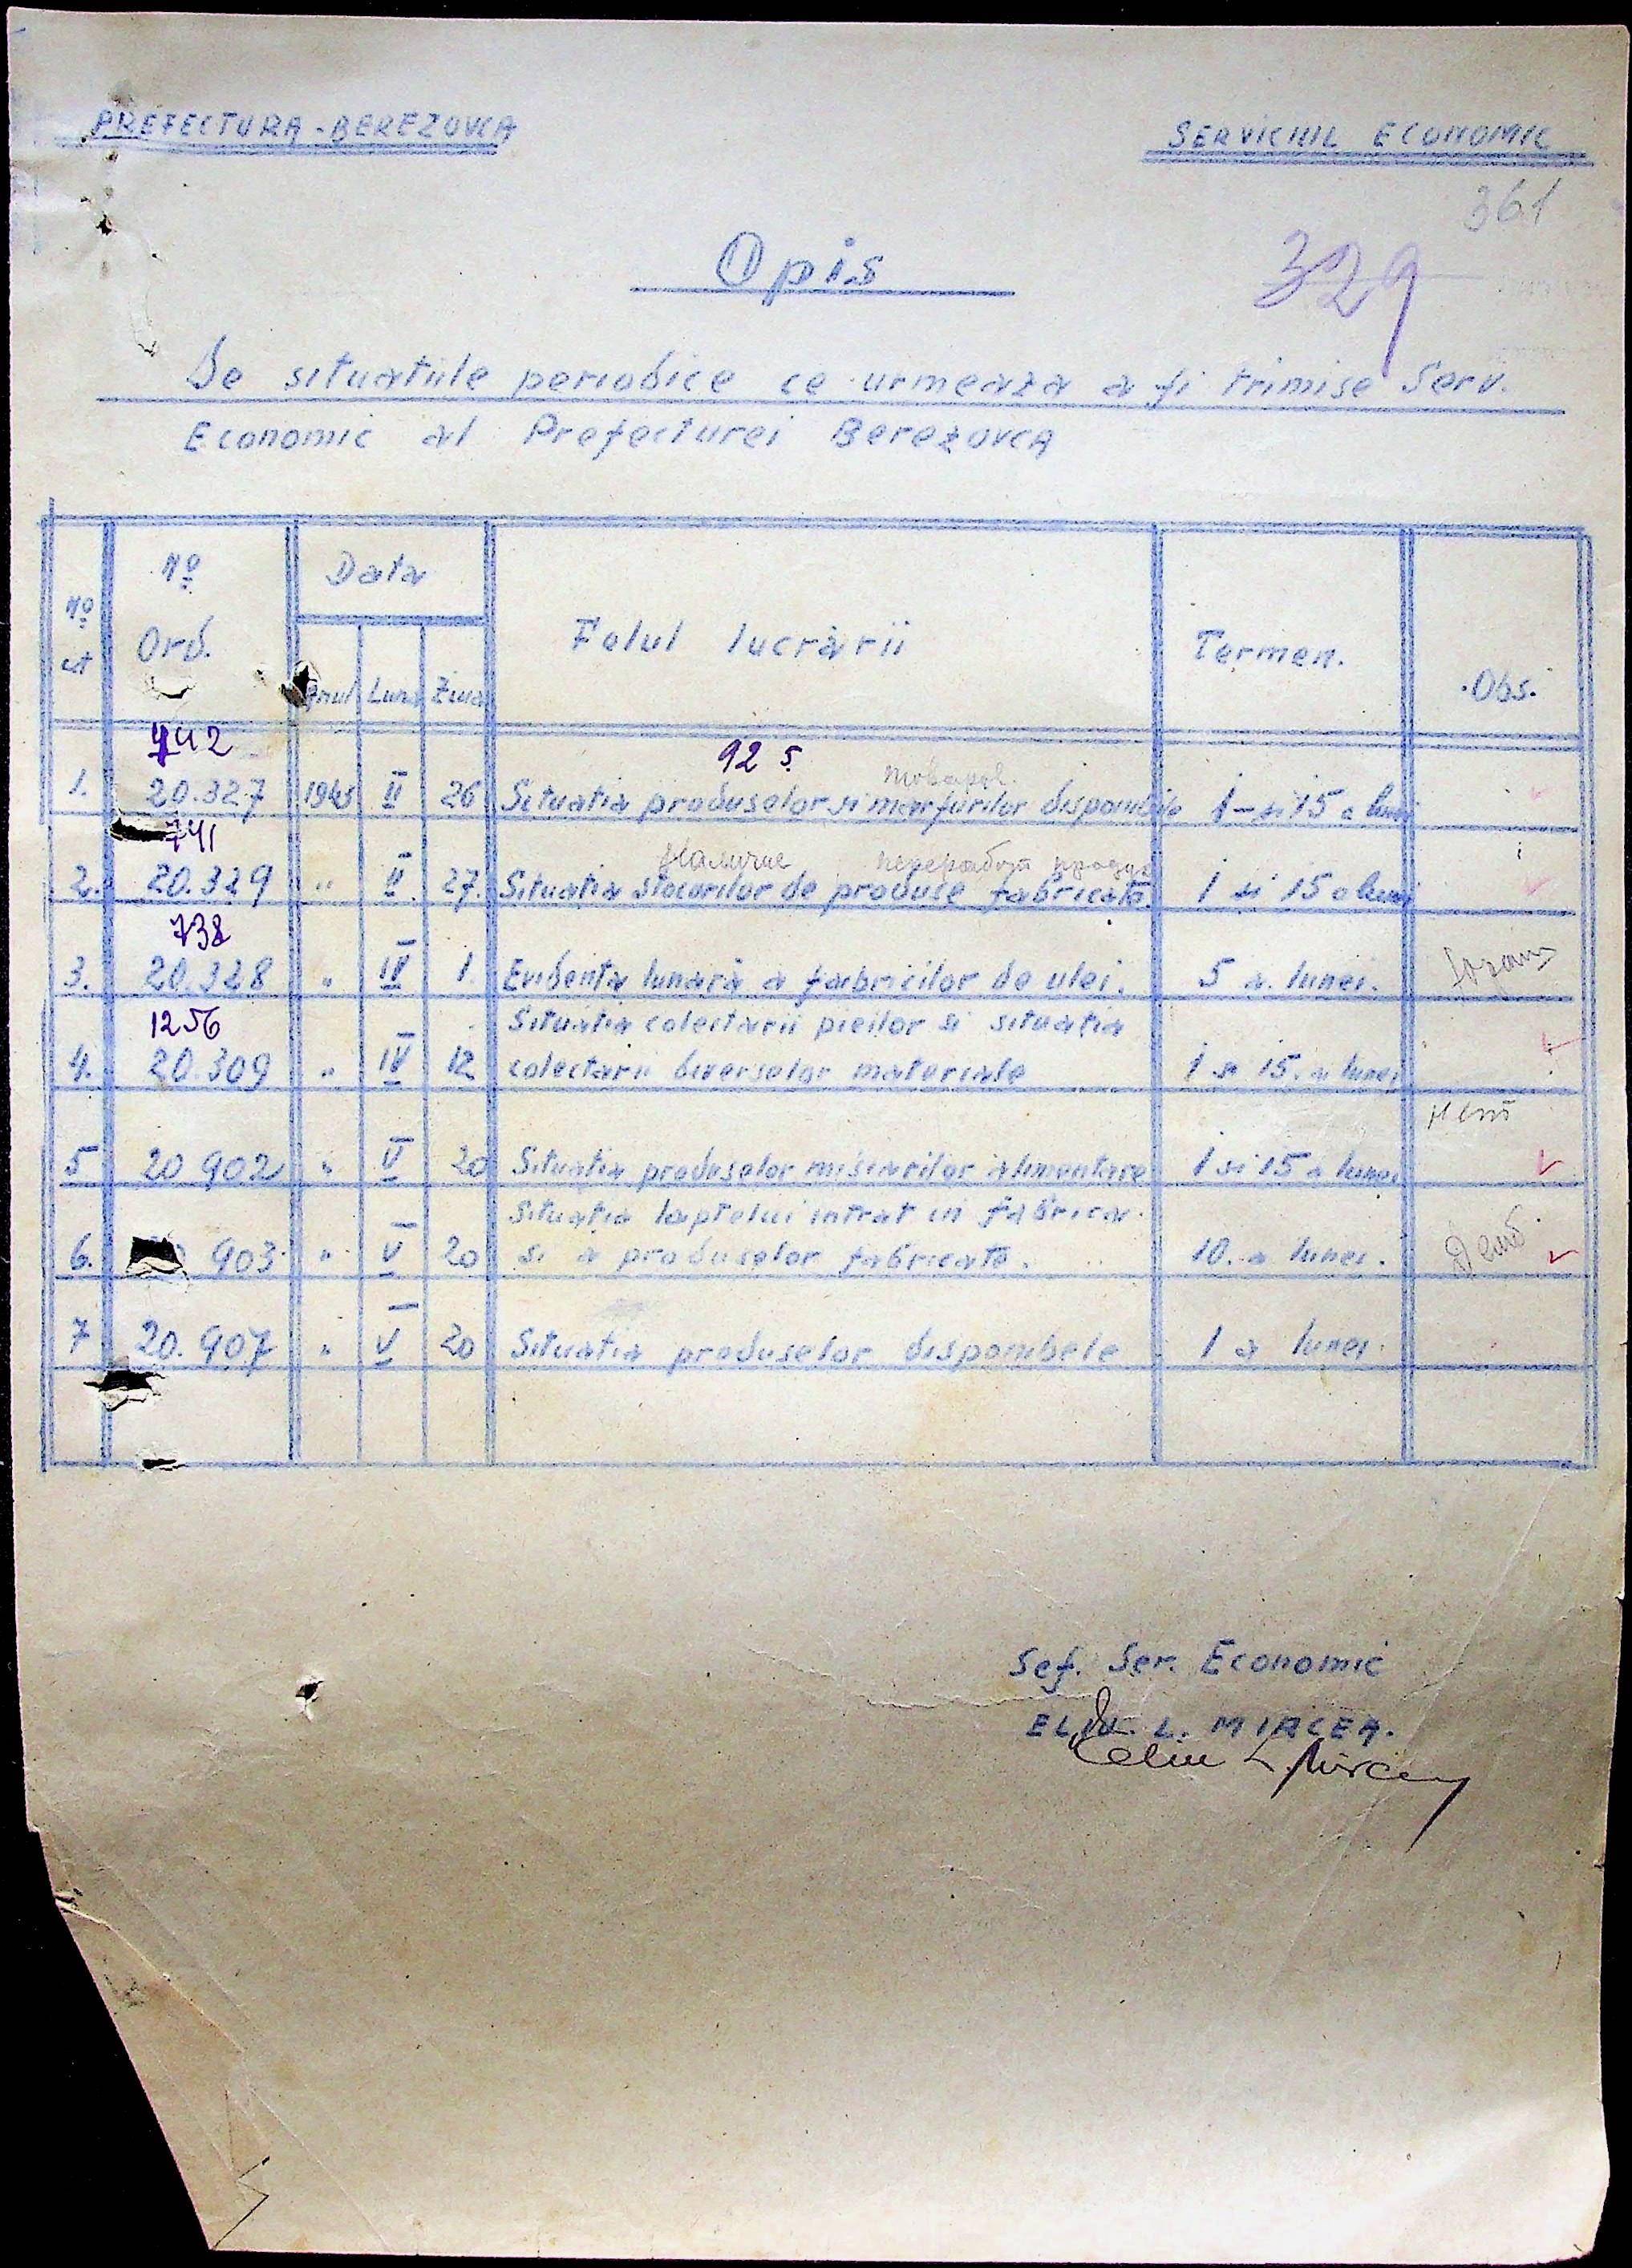 PREFECTURA - BEREZOVCA
SERVICIUL ECONOMIC
361
329
Opis
De situatiile periodice ce urmeaza a fi trimise Serv.
Economic al Prefecturei Berezovca
No ct
No Ord.
Data
Anul Luna Ziua
Felul lucrării
Termen.
Obs.
742
92 5.
товаров.
1. 20.327 1943 II 26 Situatia produselor si marfurilor disponibile 1 - si 15 a lunei
741
Наличие переработ продук
2. 20.329 " II 27. Situatia stocurilor de produse fabricate. 1 si 15 a lunei
738
3. 20.328 " IV 1 Evidenta lunară a fabricilor de ulei. 5 a. lunei.
1256
Situatia colectarii pieilor si situatia
4. 20.309 " IV 12 colectarii diverselor materiale 1 si 15. a lunei
5 20 902 " V 20 Situatia produselor alimentare 1 si 15 a lunei
Situatia laptelui intrat in fabrica
6. 903 " V 20 si a produselor fabricate. 10. a lunei.
7 20.907 " V 20 Situatia produselor disponibele 1 a lunei
Sef. Ser. Economic
ELIU L. MIRCEA.
Eeliu L Mircea